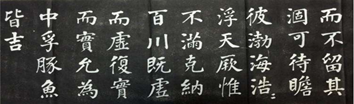 而不留其
涸可待瞻
彼渤海浩〻
浮天厥惟
不滿克納
百川既虛
而虛復實
而實允為
中孚豚魚
皆吉